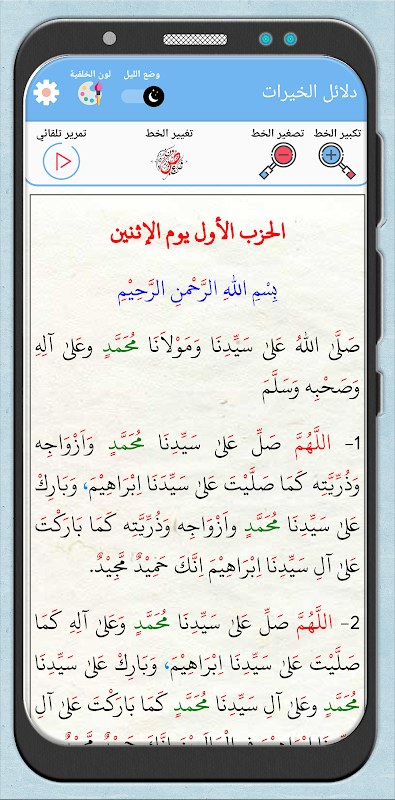 وضع الليل
لون الخلفية
دلائل الخيرات
تكبير الخط
تصغير الخط
تغيير الخط
تمرير تلقائي
الحزب الأول يوم الإثنين
بِسْمِ اللهِ الرَّحْمنِ الرَّحِيْمِ
صَلَّى اللهُ عَلىٰ سَيِّدِنَا وَمَوْلاَنَا مُحَمَّدٍ وعَلىٰ آلِهِ
وَصَحْبِه وَسَلَّمَ
1- اللَّهُمَّ صَلِّ عَلىٰ سَيِّدِنَا مُحَمَّدٍ وَاَزْوَاجِه
وَذُرِّيَّتِه كَمَا صَلَّيْتَ عَلىٰ سَيِّدَنَا اِبْرَاهِيْمَ، وَبَارِكْ
عَلىٰ سَيِّدِنَا مُحَمَّدٍ واَزْوَاجِه وَذُرِّيَّتِه كَمَا بَارَكْتَ
عَلىٰ آلِ سَيِّدِنَا اِبْرَاهِيْمَ اِنَّكَ حَمِيْدٌ مَّجِيْدٌ.
2- اللَّهُمَّ صَلِّ عَلىٰ سَيِّدِنَا مُحَمَّدٍ وَعَلىٰ آلِهِ كَمَا
صَلَّيْتَ عَلىٰ سَيِّدِنَا اِبْرَاهِيْمَ، وَبَارِكْ عَلىٰ سَيِّدِنَا
مُحَمَّدٍ وعَلىٰ آلِ سَيِّدِنَا مُحَمَّدٍ كَمَا بَارَكْتَ عَلىٰ آلِ